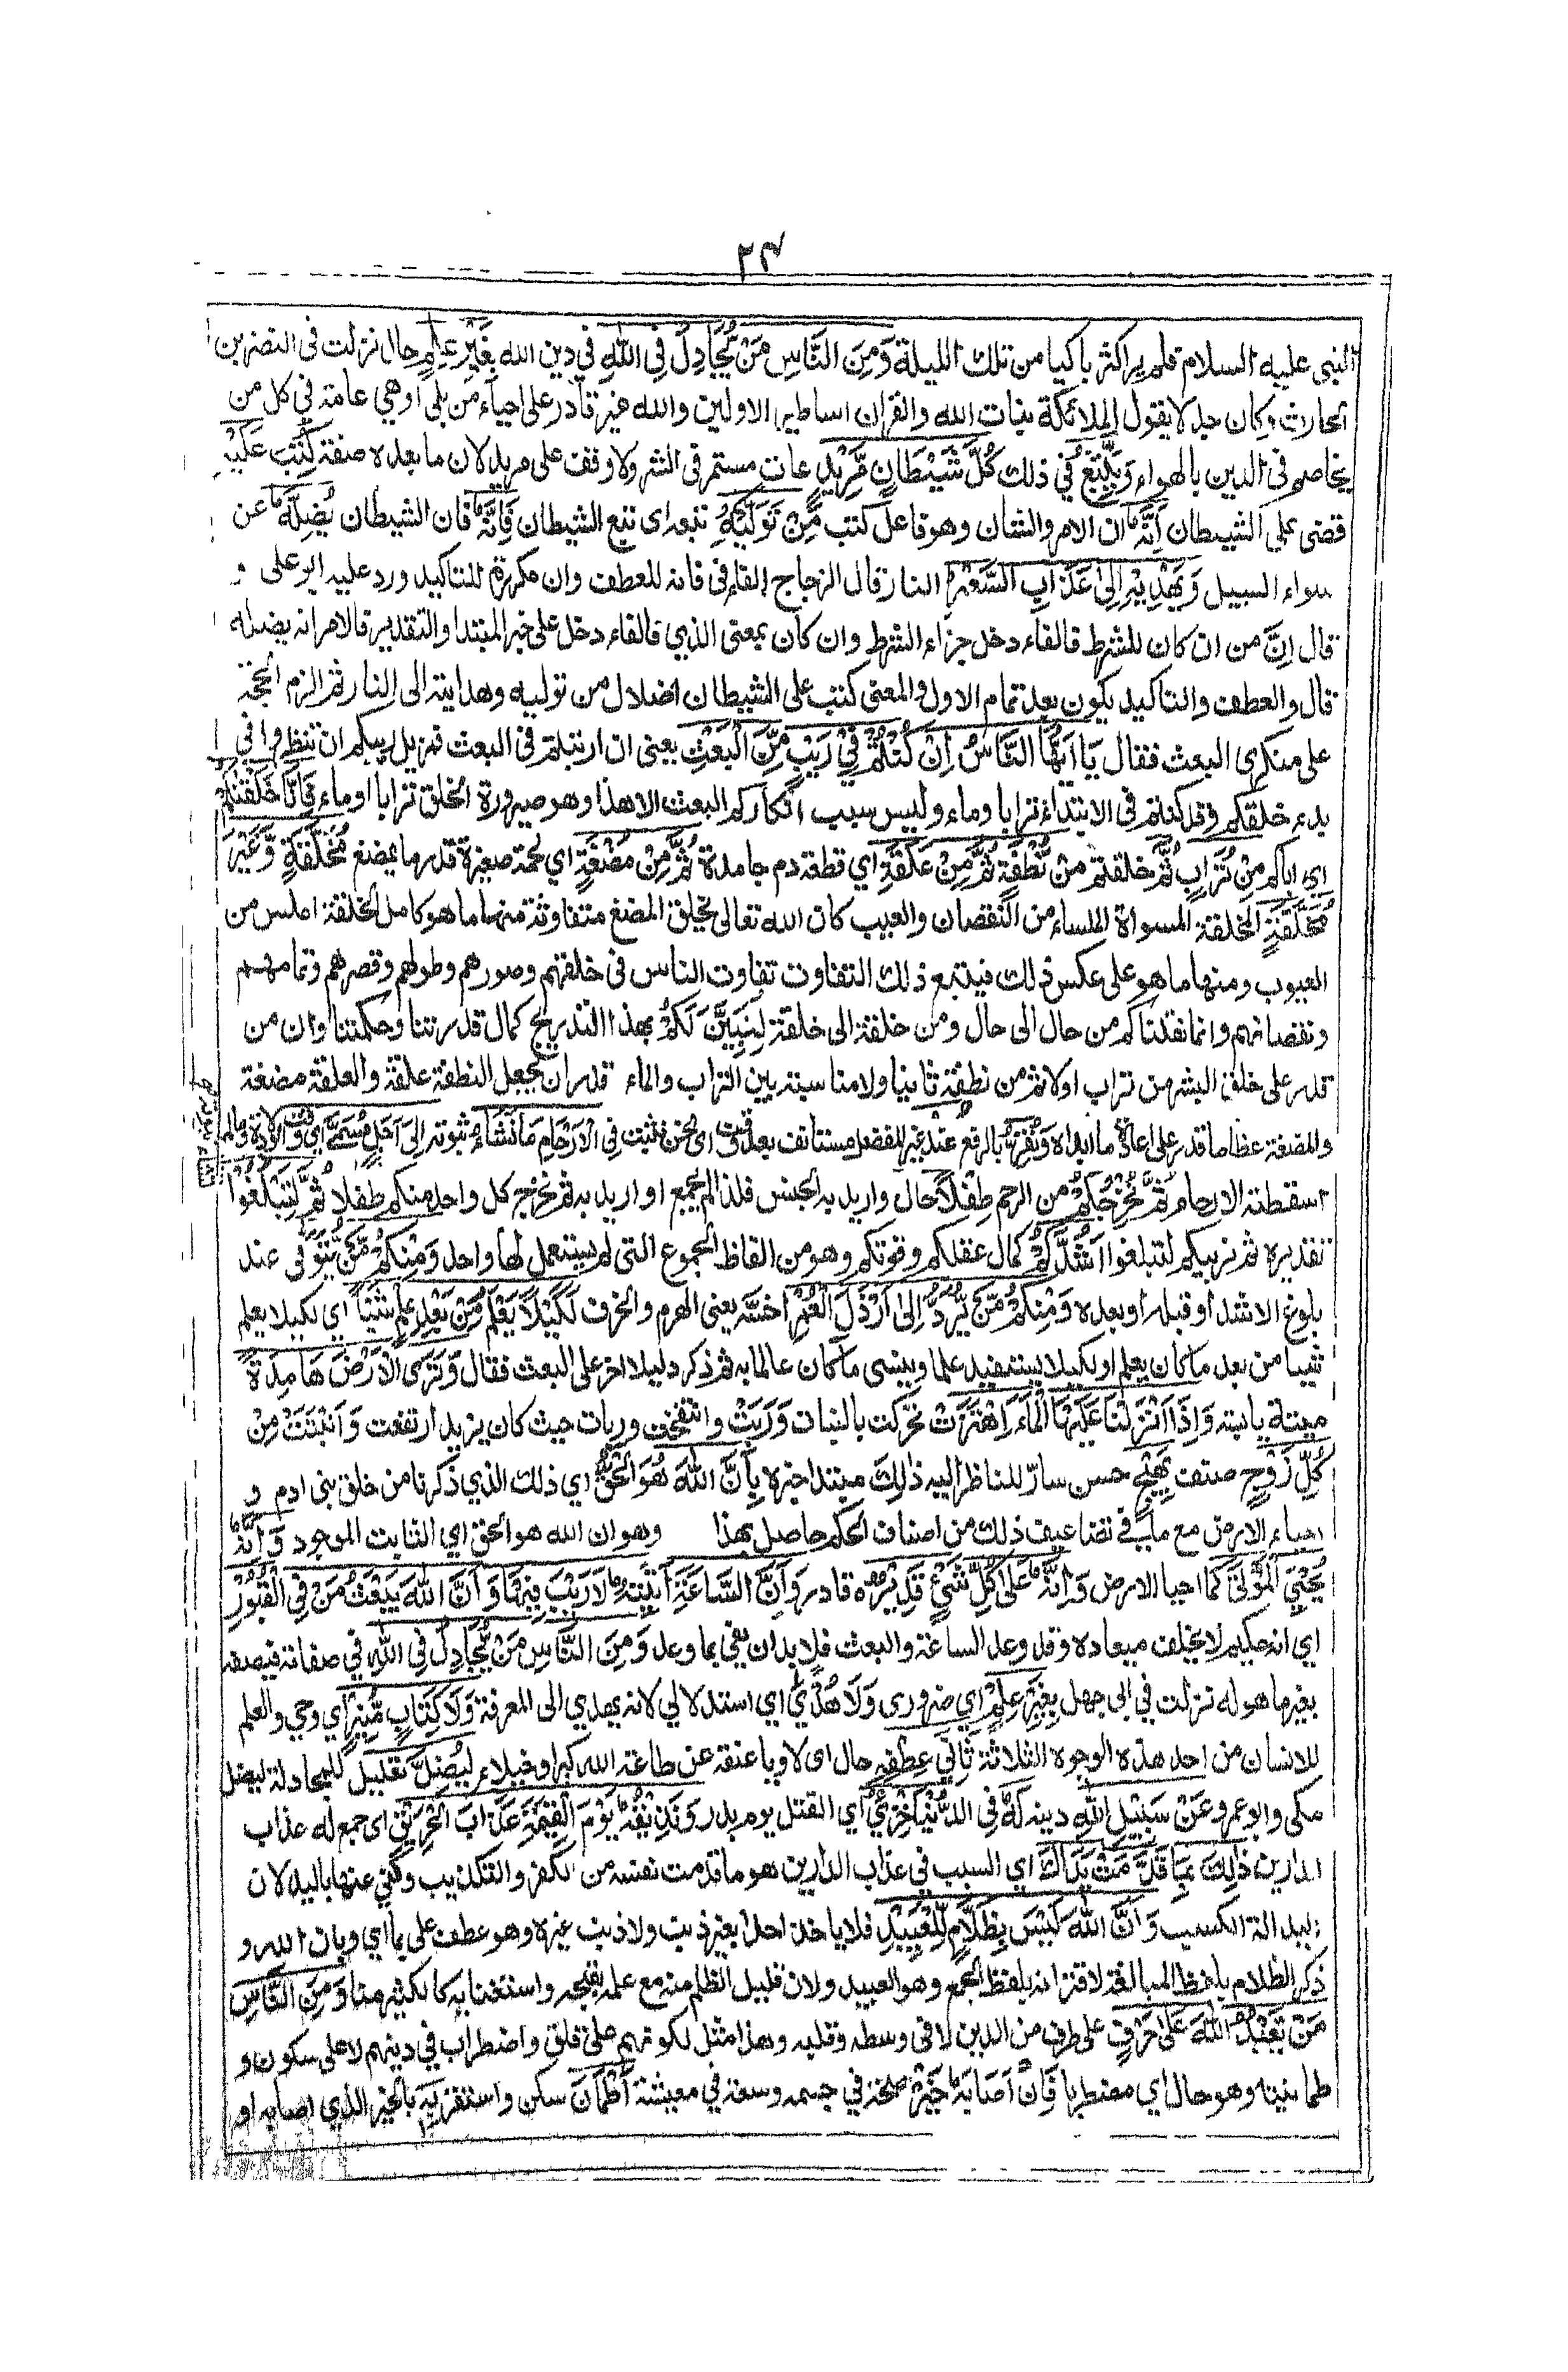 ٢٣
النبى عليه السلام فلم ير اكثر باكيا من تلك الليلة وَمِنَ النَّاسِ مَنْ يُّجَادِلُ فِى اللهِ في دين الله بِغَيْرِ عِلْمٍ حال نزلت فى النضر بن
الحارث وكان جدلا يقول الملائكة بنات الله والقران اساطير الاولين والله غير قادر على احياء من بلى او هي عامة فى كل من
يخاصم فى الدين بالهواء وَيَتَّبِعُ في ذلك كُلَّ شَيْطَانٍ مَّرِيْدٍ عات مستمر فى الشر ولا وقف على مريد لان ما بعده صفة كُتِبَ عَلَيْهِ
قضى على الشيطان اَنَّهٗ ان الامر والشان وهو فاعل كتب مَنْ تَوَلَّاهُ تبعه اى تبع الشيطان فَاَنَّهٗ فان الشيطان يُضِلُّهٗ عن
سواء السبيل وَيَهْدِيْهِ اِلىٰ عَذَابِ السَّعِيْرِ النار قال الزجاج الفاء فى فانه للعطف وان مكررة للتاكيد ورد عليه ابو على و
قال اِنَّ من ان كان للشرط فالفاء دخل جزاء الشرط وان كان بمعنى الذي فالفاء دخل على خبر المبتدا والتقدير فالامر انه يضله
قال والعطف والتاكيد يكون بعد تمام الاول والمعنى كتب على الشيطان اضلال من تولاه وهدايته الى النار ثم الزم الحجة
على منكرى البعث فقال يَا اَيُّهَا النَّاسُ اِنْ كُنْتُمْ فِيْ رَيْبٍ مِّنَ الْبَعْثِ يعنى ان ارتبتم فى البعث فمزيل ريبكم ان تنظروا في
بدء خلقكم وقد كنتم فى الابتداء ترابا وماء وليس سبب انكاركم البعث الا هذا وهو صيرورة الخلق ترابا او ماء فَاِنَّا خَلَقْنٰكُمْ
اي اباكم مِنْ تُرَابٍ ثُمَّ خلقتم مِنْ نُّطْفَةٍ ثُمَّ مِنْ عَلَقَةٍ اي قطعة دم جامدة ثُمَّ مِنْ مُضْغَةٍ اي لحمة صغيرة قدر ما يمضغ مُخَلَّقَةٍ وَّغَيْرِ
مُخَلَّقَةٍ المخلقة المسواة الملساء من النقصان والعيب كان الله تعالى يخلق المضغ متفاوتة منها ما هو كامل الخلقة املس من
العيوب ومنها ما هو على عكس ذلك فيتبع ذلك التفاوت تفاوت الناس فى خلقهم وصورهم وطولهم وقصرهم وتمامهم
ونقصانهم وانما نقلناكم من حال الى حال ومن خلقة الى خلقة لِنُبَيِّنَ لَكُمْ بهذا التدريج كمال قدرتنا وحكمتنا وان من
قدر على خلق البشر من تراب اولا ثم من نطفة ثانيا ولا مناسبة بين التراب والماء قدر ان يجعل النطفة علقة والعلقة مضغة
والمضغة عظاما قدر على اعادة ما ابداه وَنُقِرُّ بالرفع عند غير المفضل مستانف بعد وقف اى نحن نثبت فِى الْاَرْحَامِ مَا نَشَاءُ ثبوته اِلىٰ اَجَلٍ مُّسَمًّى اي وقت الولادة وما لم
اسقطته الارحام ثُمَّ نُخْرِجُكُمْ من الرحم طِفْلًا حال واريد به الجنس فلذا لم يجمع او اريد به ثم نخرج كل واحد منكم طفلا ثُمَّ لِتَبْلُغُوْا
تقديره ثم نربيكم لتبلغوا اَشُدَّكُمْ كمال عقلكم وقوتكم وهو من الفاظ الجموع التى لم يستعمل لها واحد وَمِنْكُمْ مَّنْ يُّتَوَفّٰى عند
بلوغ الاشد او قبله او بعده وَمِنْكُمْ مَّنْ يُّرَدُّ اِلىٰ اَرْذَلِ الْعُمُرِ اخسّه يعنى الهرم والخرف لِكَيْلَا يَعْلَمَ مِنْ بَعْدِ عِلْمٍ شَيْئًا اي لكيلا يعلم
شيئا من بعد ما كان يعلم او لكيلا يستفيد علما وينسى ما كان عالما به ثم ذكر دليلا اخر على البعث فقال وَتَرَى الْاَرْضَ هَامِدَةً
ميتة يابسة وَاِذَا اَنْزَلْنَا عَلَيْهَا الْمَاءَ اهْتَزَّتْ تحركت بالنبات وَرَبَتْ وانتفخت وربات حيث كان يزيد ارتفعت وَاَنْبَتَتْ مِنْ
كُلِّ زَوْجٍ صنف بَهِيْجٍ حسن سارّ للناظر اليه ذٰلِكَ مبتدا خبره بِاَنَّ اللهَ هُوَ الْحَقُّ اي ذلك الذي ذكرنا من خلق بنى ادم و
احياء الارض مع ما في تضاعيف ذلك من اصناف الحكم حاصل بهذا وهو ان الله هو الحق اي الثابت الموجود وَاَنَّهٗ
يُحْيِى الْمَوْتٰى كما احيا الارض وَاَنَّهٗ عَلىٰ كُلِّ شَيْءٍ قَدِيْرٌ قادر وَاَنَّ السَّاعَةَ اٰتِيَةٌ لَا رَيْبَ فِيْهَا وَاَنَّ اللهَ يَبْعَثُ مَنْ فِى الْقُبُوْرِ
اي انه حكيم لا يخلف ميعاده وقد وعد الساعة والبعث فلا بد ان يفى بما وعد وَمِنَ النَّاسِ مَنْ يُّجَادِلُ فِى اللهِ في صفاته فيصفه
بغير ما هو له نزلت في ابى جهل بِغَيْرِ عِلْمٍ اي ضرورى وَلَا هُدًى اي استدلالي لانه يهدي الى المعرفة وَلَا كِتَابٍ مُّنِيْرٍ اي وحي والعلم
للانسان من احد هذه الوجوه الثلاثة ثَانِيَ عِطْفِهٖ حال اى لاويا عنقه عن طاعة الله كبرا وخيلاء لِيُضِلَّ تعليل للمجادلة ليضل
مكى وابو عمرو عَنْ سَبِيْلِ اللهِ دينه لَهٗ فِى الدُّنْيَا خِزْيٌ اي القتل يوم بدر وَنُذِيْقُهٗ يَوْمَ الْقِيٰمَةِ عَذَابَ الْحَرِيْقِ اى جمع له عذاب
الدارين ذٰلِكَ بِمَا قَدَّمَتْ يَدَاكَ اي السبب في عذاب الدارين هو ما قدمت نفسه من الكفر والتكذيب وكني عنها باليد لان
اليد الة الكسب وَاَنَّ اللهَ لَيْسَ بِظَلَّامٍ لِّلْعَبِيْدِ فلا ياخذ احدا بغير ذنب ولا ذنب غيره وهو عطف على بما اي وبان الله و
ذكر الظلام بلفظ المبالغة لاقترانه بلفظ الجمع وهو العبيد ولان قليل الظلم منه مع علمه بقبحه واستغنائه كالكثير منا وَمِنَ النَّاسِ
مَنْ يَّعْبُدُ اللهَ عَلىٰ حَرْفٍ على طرف من الدين لا فى وسطه وقلبه وهذا مثل لكونهم على قلق واضطراب في دينهم لا على سكون و
طمانينة وهو حال اي مضطربا فَاِنْ اَصَابَهٗ خَيْرٌ صحة في جسمه وسعة في معيشته اطْمَاَنَّ سكن واستقر بِهٖ بالخير الذي اصابه او